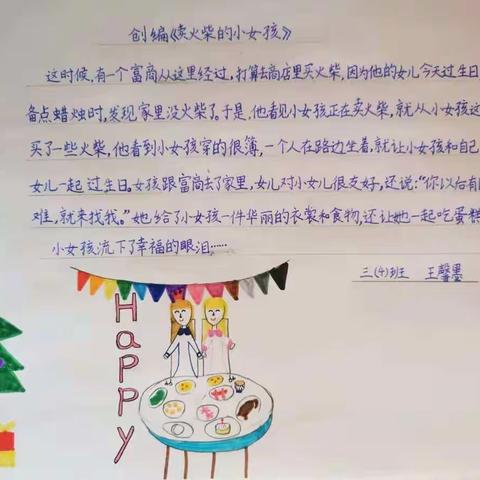 创编《卖火柴的小女孩》
这时候,有一个富商从这里经过,打算去商店里买火柴,因为他的女儿今天过生日
备点蜡烛时,发现家里没火柴了。于是,他看见小女孩正在卖火柴,就从小女孩这
买了一些火柴,他看到小女孩穿的很簿,一个人在路边坐着,就让小女孩和自己
女儿一起过生日。女孩跟富商去了家里,女儿对小女儿很友好,还说:“你以后有
难,就来找我。”她给了小女孩一件华丽的衣裳和食物,还让她一起吃蛋糕
小女孩流下了幸福的眼泪……
三(4)班 王馨墨
Happy